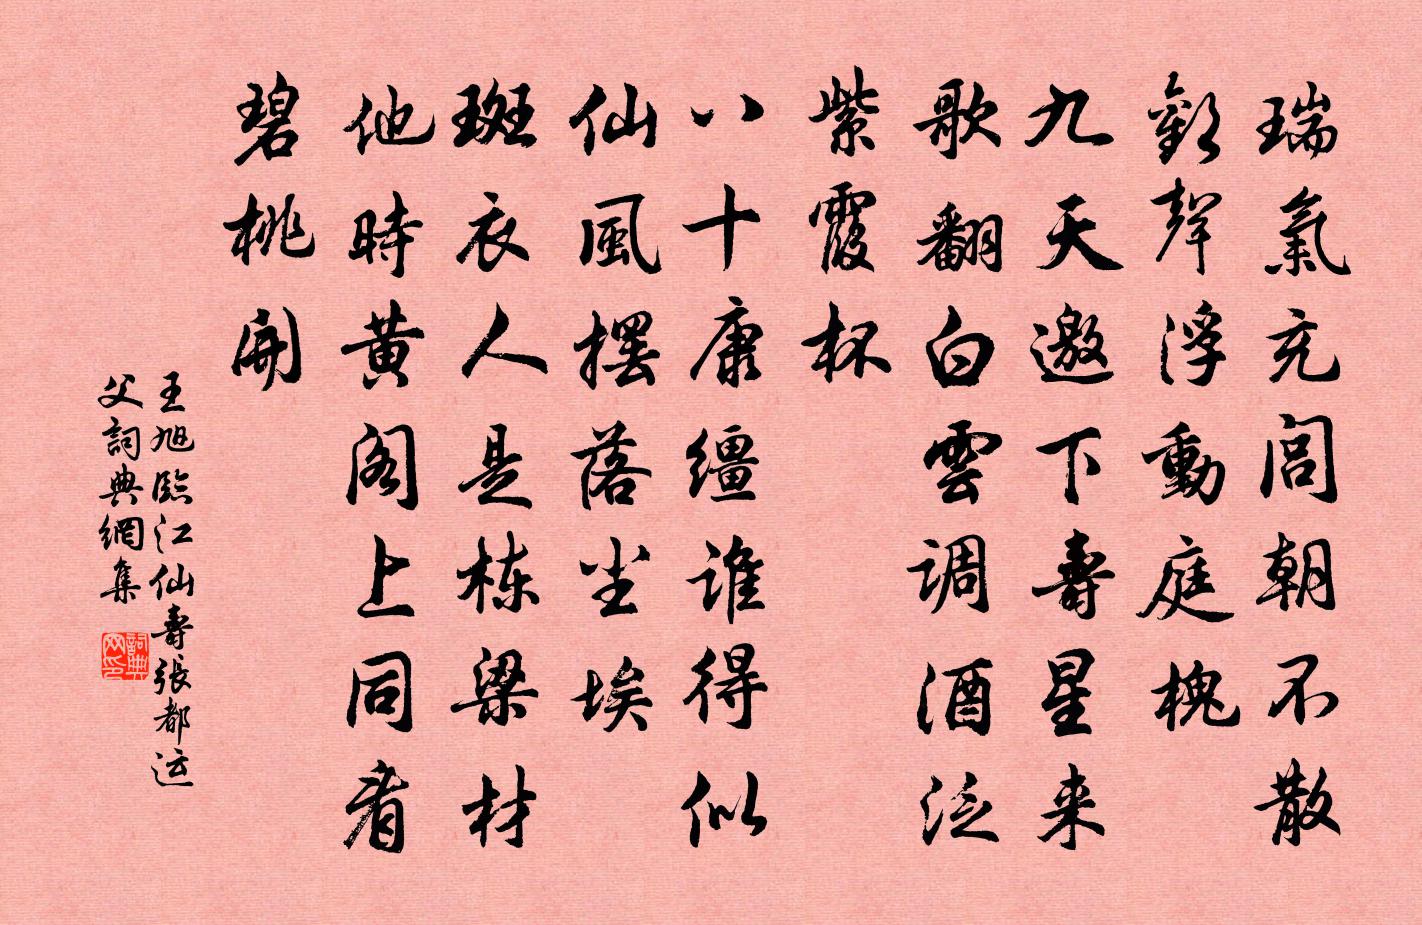 瑞氣充閭朝不散
歡聲浮動庭槐
九天邀下壽星来
歌翻白雲调酒泛
紫霞杯
八十康缰谁得似
仙風摆落尘埃
斑衣人是栋梁材
他時黄阁上同看
碧桃開
王旭臨江仙壽張都运
父詞典網集
詞典网印